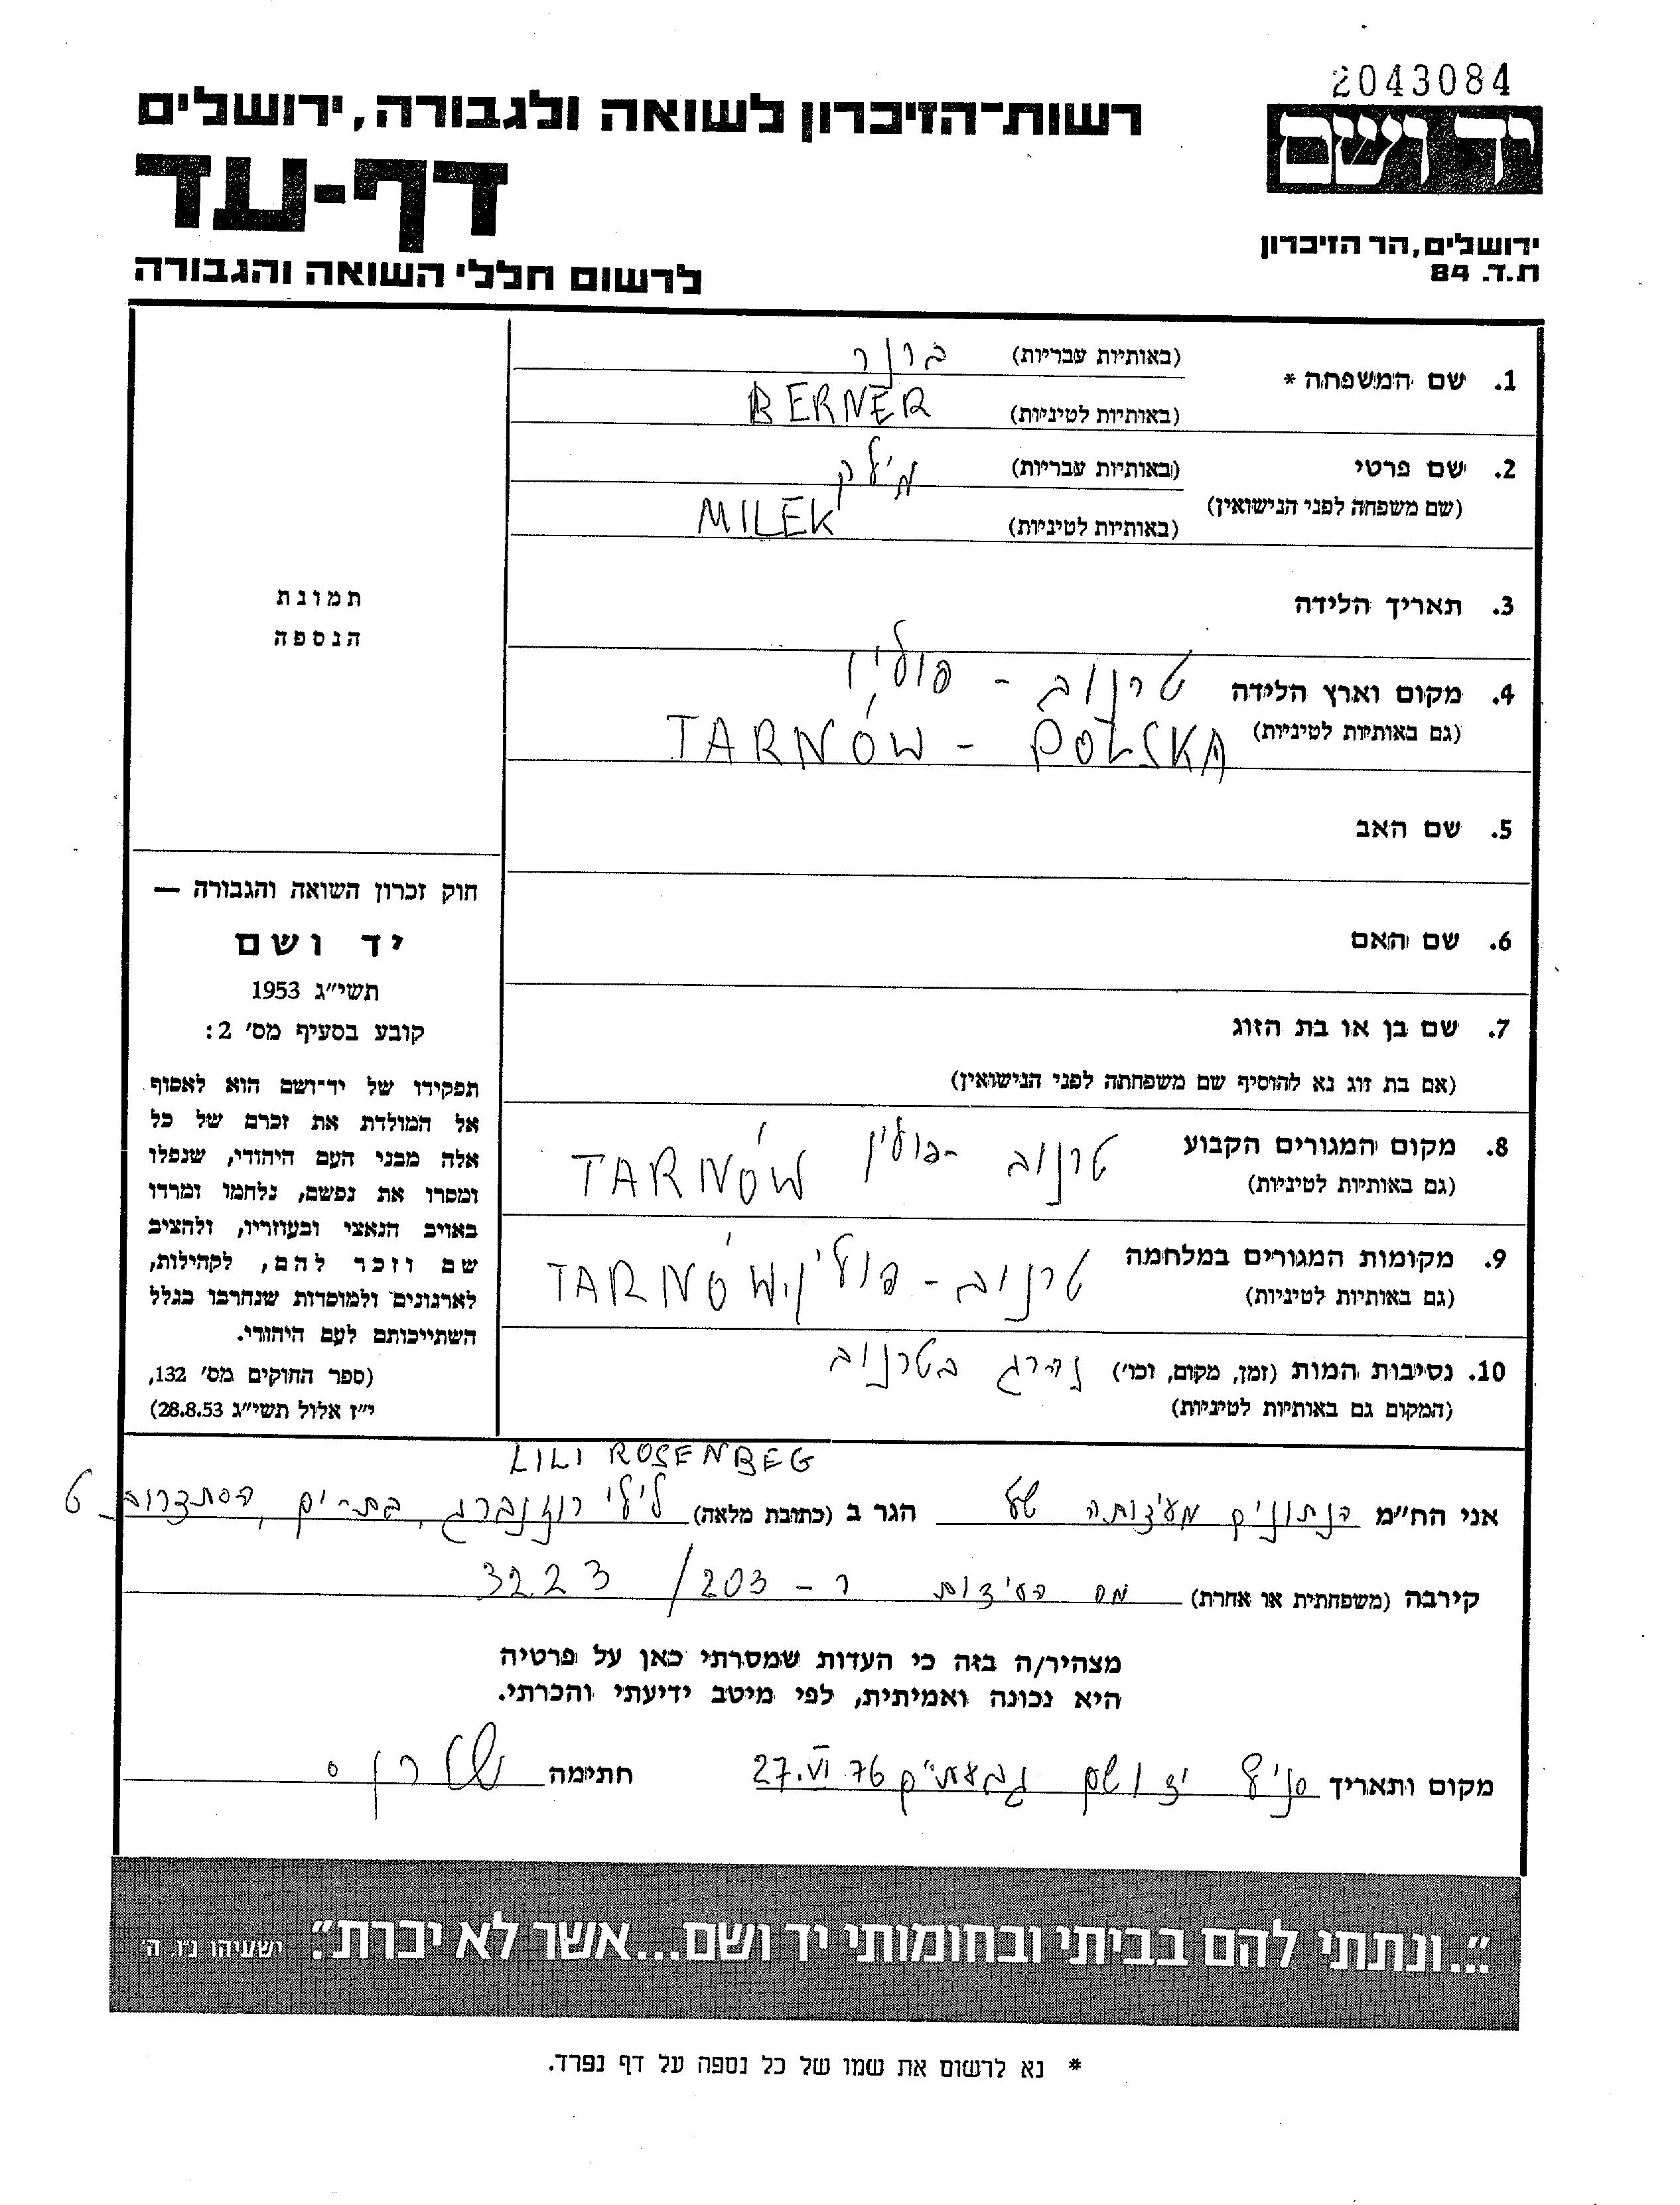 2043084
יד ושם
רשות־הזיכרון לשואה ולגבורה, ירושלים
דף-עד
ירושלים, הר הזיכרון
ת.ד. 84
לרשום חללי השואה והגבורה
1. שם המשפחה * (באותיות עבריות) ברנר
(באותיות לטיניות) BERNER
2. שם פרטי (באותיות עבריות) מילק
(שם משפחה לפני הנישואין)
(באותיות לטיניות) MILEK
3. תאריך הלידה
4. מקום וארץ הלידה טרנוב - פולין
(גם באותיות לטיניות) TARNÓW - POLSKA
5. שם האב
6. שם האם
7. שם בן או בת הזוג
(אם בת זוג נא להוסיף שם משפחתה לפני הנישואין)
8. מקום המגורים הקבוע טרנוב - פולין TARNÓW
(גם באותיות לטיניות)
9. מקומות המגורים במלחמה טרנוב - פולין TARNÓW
(גם באותיות לטיניות)
10. נסיבות המות (זמן, מקום, וכו') נהרג בטרנוב
(המקום גם באותיות לטיניות)
תמונת
הנספה
חוק זכרון השואה והגבורה —
יד ושם
תשי"ג 1953
קובע בסעיף מס' 2:
תפקידו של יד־ושם הוא לאסוף
אל המולדת את זכרם של כל
אלה מבני העם היהודי, שנפלו
ומסרו את נפשם, נלחמו ומרדו
באויב הנאצי ובעוזריו, ולהציב
שם וזכר להם, לקהילות,
לארגונים ולמוסדות שנחרבו בגלל
השתייכותם לעם היהודי.
(ספר החוקים מס' 132,
י"ז אלול תשי"ג 28.8.53)
LILI ROSENBEG
אני הח"מ הנתונים מעדותה של הגר ב (כתובת מלאה) לילי רוזנברג, בת-ים, הסתדרות 6
קירבה (משפחתית או אחרת) מס העדות ר - 203/3223
מצהיר/ה בזה כי העדות שמסרתי כאן על פרטיה
היא נכונה ואמיתית, לפי מיטב ידיעתי והכרתי.
מקום ותאריך סניף יד ושם גבעתיים 27.VI 76 חתימה
"...ונתתי להם בביתי ובחומותי יד ושם...אשר לא יכרת". ישעיהו נ"ו, ה'
* נא לרשום את שמו של כל נספה על דף נפרד.